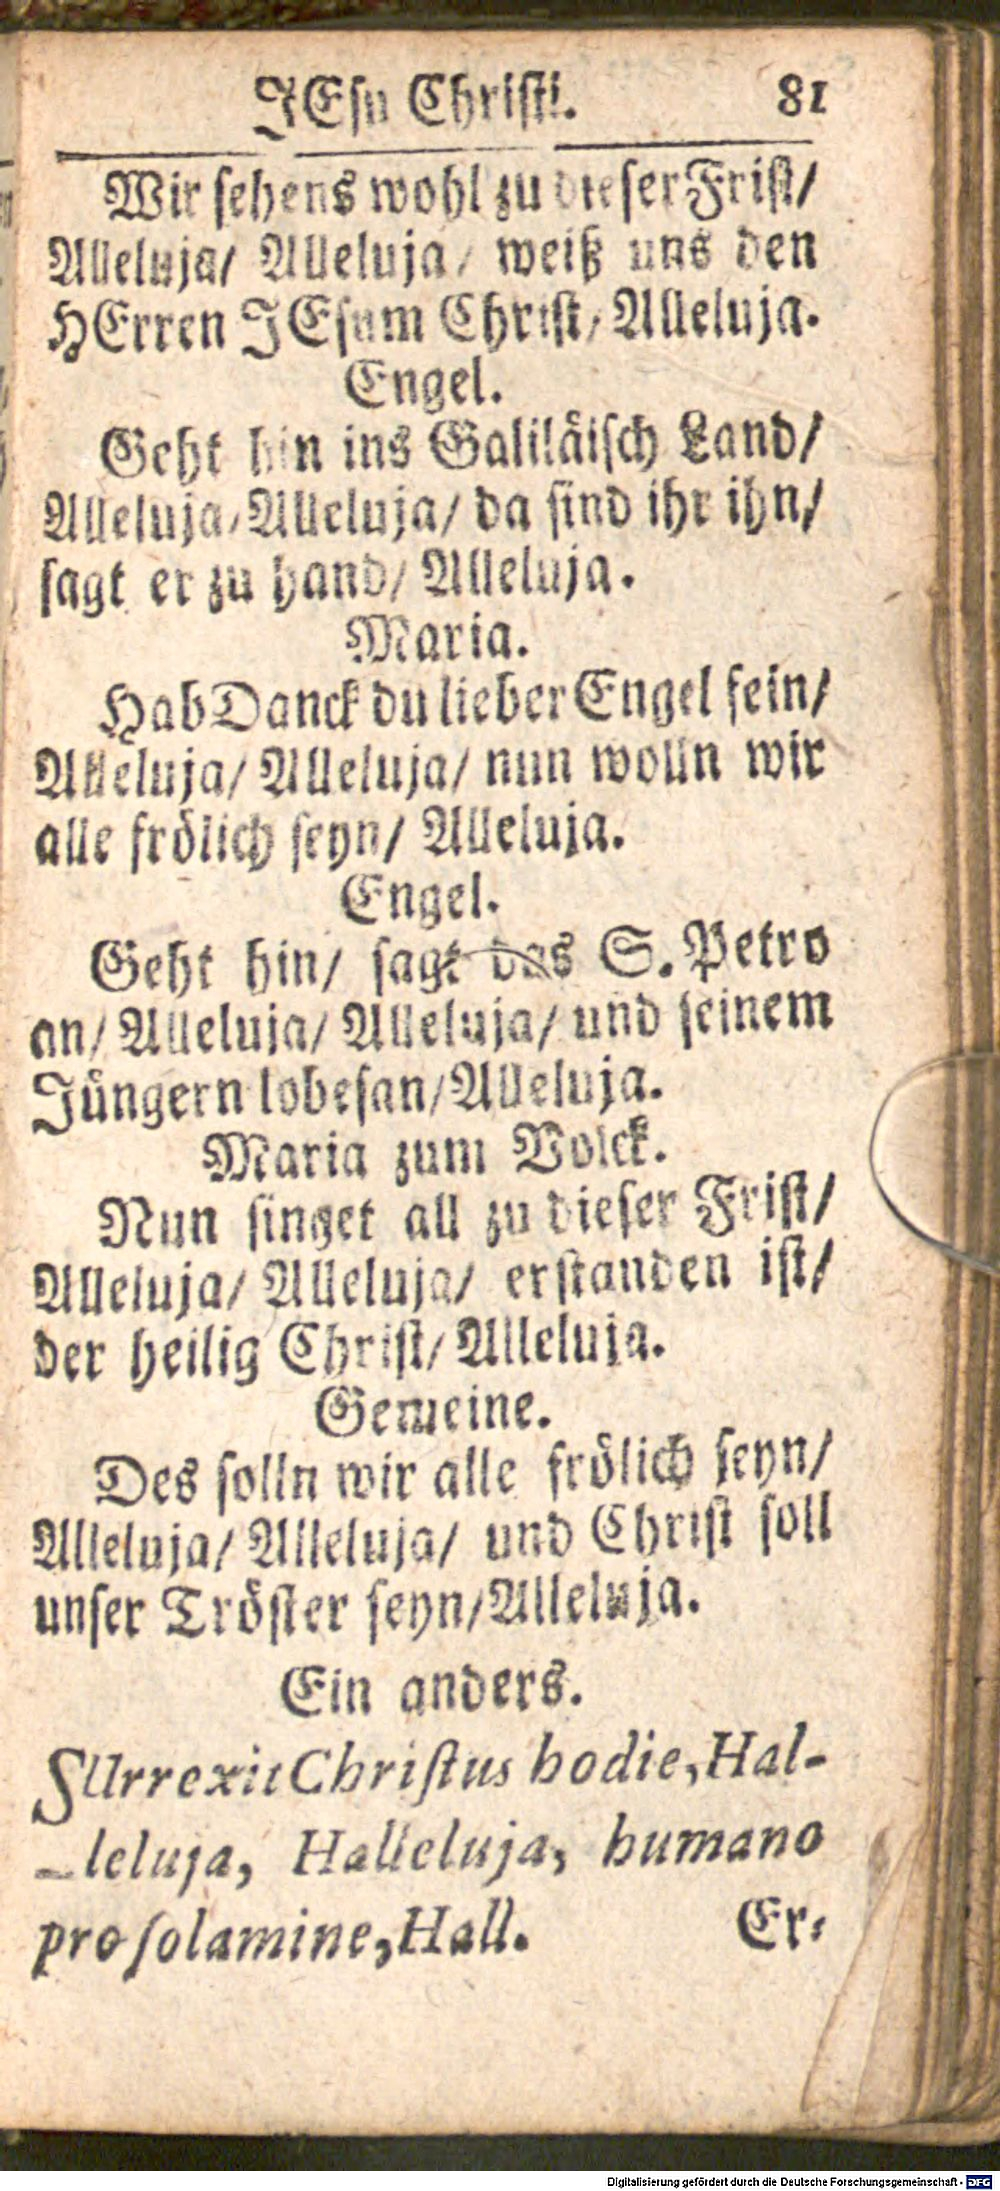 JEsu Christi. 81
Wir sehens wohl zu dieser Frist/
Alleluja/ Alleluja/ weiß uns den
HErren JEsum Christ/ Alleluja.
Engel.
Geht hin ins Galiläisch Land/
Alleluja/ Alleluja/ da sind ihr ihn/
sagt er zu hand/ Alleluja.
Maria.
Hab Danck du lieber Engel fein/
Alleluja/ Alleluja/ nun wolln wir
alle frölich seyn/ Alleluja.
Engel.
Geht hin/ sagt das S. Petro
an/ Alleluja/ Alleluja/ und seinem
Jüngern lobesan/ Alleluja.
Maria zum Volck.
Nun singet all zu dieser Frist/
Alleluja/ Alleluja/ erstanden ist/
der heilig Christ/ Alleluja.
Gemeine.
Des solln wir alle frölich seyn/
Alleluja/ Alleluja/ und Christ soll
unser Tröster seyn/ Alleluja.
Ein anders.
SUrrexit Christus hodie, Hal-
leluja, Halleluja, humano
pro solamine, Hall. Er-
Digitalisierung gefördert durch die Deutsche Forschungsgemeinschaft - DFG